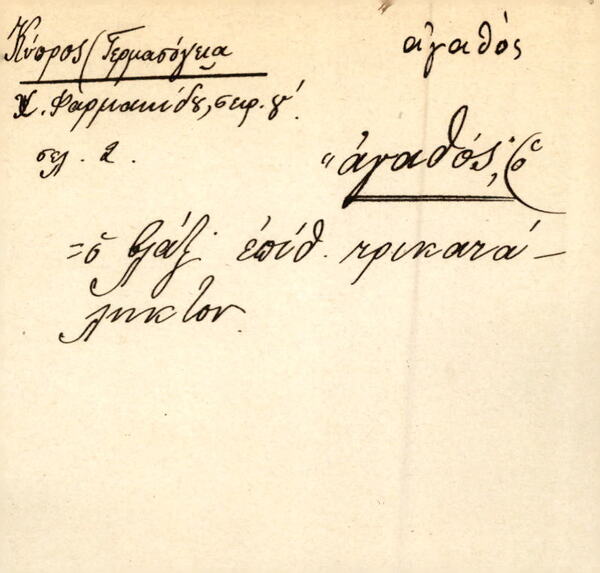 Κύπρος (Γερμασόγεια
Χ. Φαρμακίδου, σειρ. γ΄.
σελ. 2.
ἀγαθός
"ἀγαθός, (ὁ
= ὁ βλάξ· ἐπίθ. τρικατά-
ληκτον